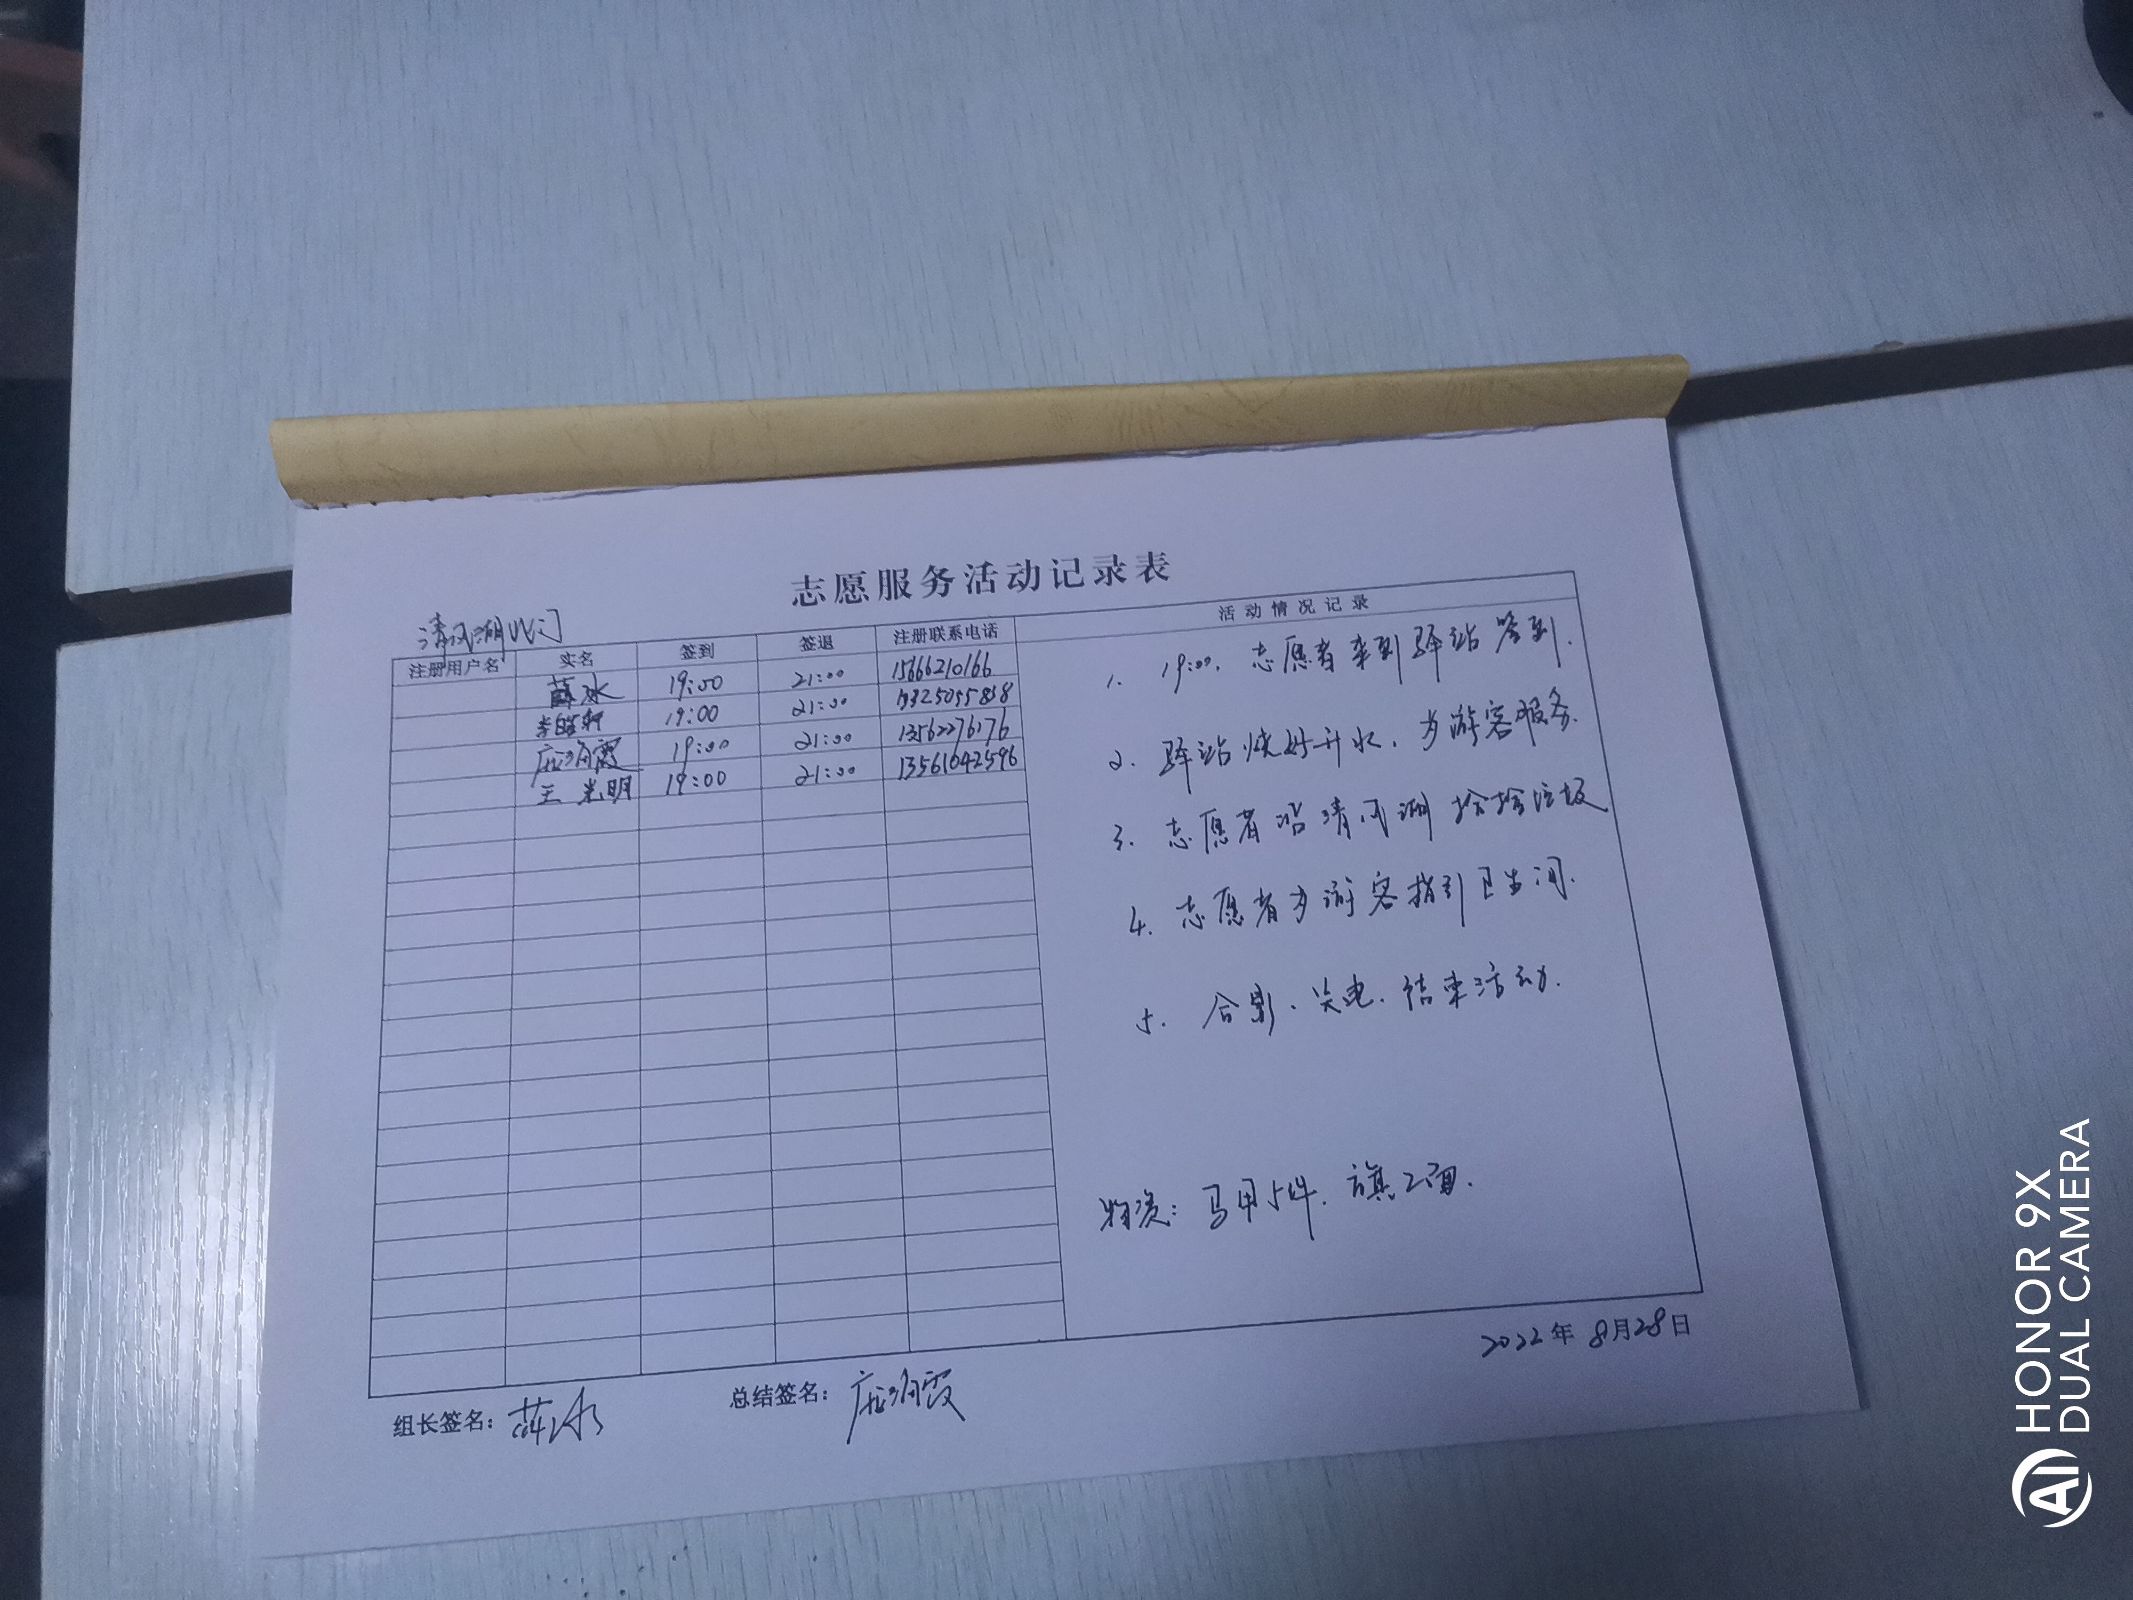 志愿服务活动记录表
清风湖北门
注册用户名 实名 签到 签退 注册联系电话 活动情况记录
薛冰 19:00 21:00 15666210166
19:00 21:00
19:00 21:00 13562276176
王光明 19:00 21:00 13561042596
1. 19:00. 志愿者来到驿站签到.
2. 驿站烧好开水. 为游客服务.
3. 志愿者沿清风湖捡拾垃圾
4. 志愿者为游客指引卫生间.
5. 合影. 关电. 结束活动.
物资: 马甲5件. 旗2面.
2022年8月28日
组长签名: 薛冰 总结签名:
HONOR 9X
AI DUAL CAMERA